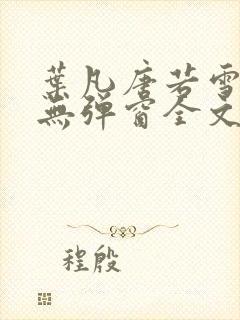 葉凡唐若雪
無彈窗全文
程殷